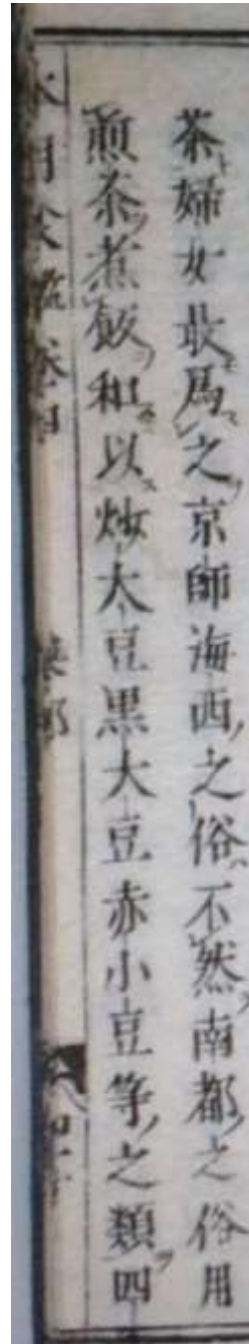 茶婦女最爲之京師海西之俗不然南都之俗用
煎茶煮飯和以炒大豆黒大豆赤小豆等之類四